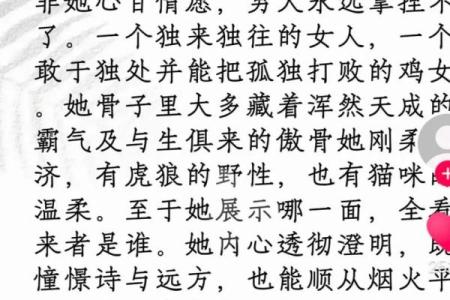 非她心甘情愿，男人永远掌控不
了。一个独来独往的女人，一个
敢于独处并能把孤独打败的鸡女
。她骨子里大多藏着浑然天成的
霸气及与生俱来的傲骨她刚柔
济，有虎狼的野性，也有猫咪的
温柔。至于她展示哪一面，全看
来者是谁。她内心透彻澄明，既
憧憬诗与远方，也能顺从烟火平